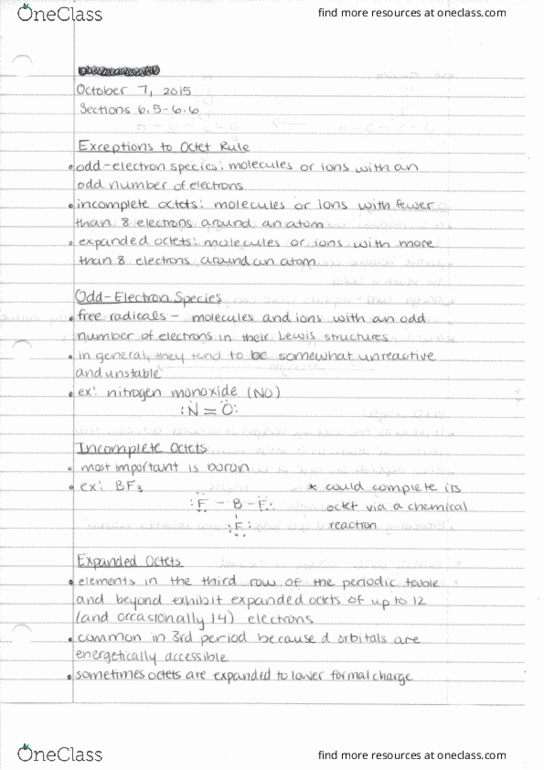 OneClass find more resources at oneclass.com
October 7, 2015
Sections 6.5-6.6
Exceptions to Octet Rule
• odd-electron species: molecules or ions with an
odd number of electrons
• incomplete octets: molecules or ions with fewer
than 8 electrons around an atom
• expanded octets: molecules or ions with more
than 8 electrons around an atom
Odd-Electron Species
• free radicals - molecules and ions with an odd
number of electrons in their Lewis structures
• in general, they tend to be somewhat unreactive
and unstable
• ex: nitrogen monoxide (NO)
:N=O:
Incomplete Octets
• most important is boron
• ex: BF₃ * could complete its
:F - B - F: octet via a chemical
:F: reaction
Expanded Octets
• elements in the third row of the periodic table
and beyond exhibit expanded octets of up to 12
(and occasionally 14) electrons
• common in 3rd period because d orbitals are
energetically accessible
• sometimes octets are expanded to lower formal charge
OneClass find more resources at oneclass.com